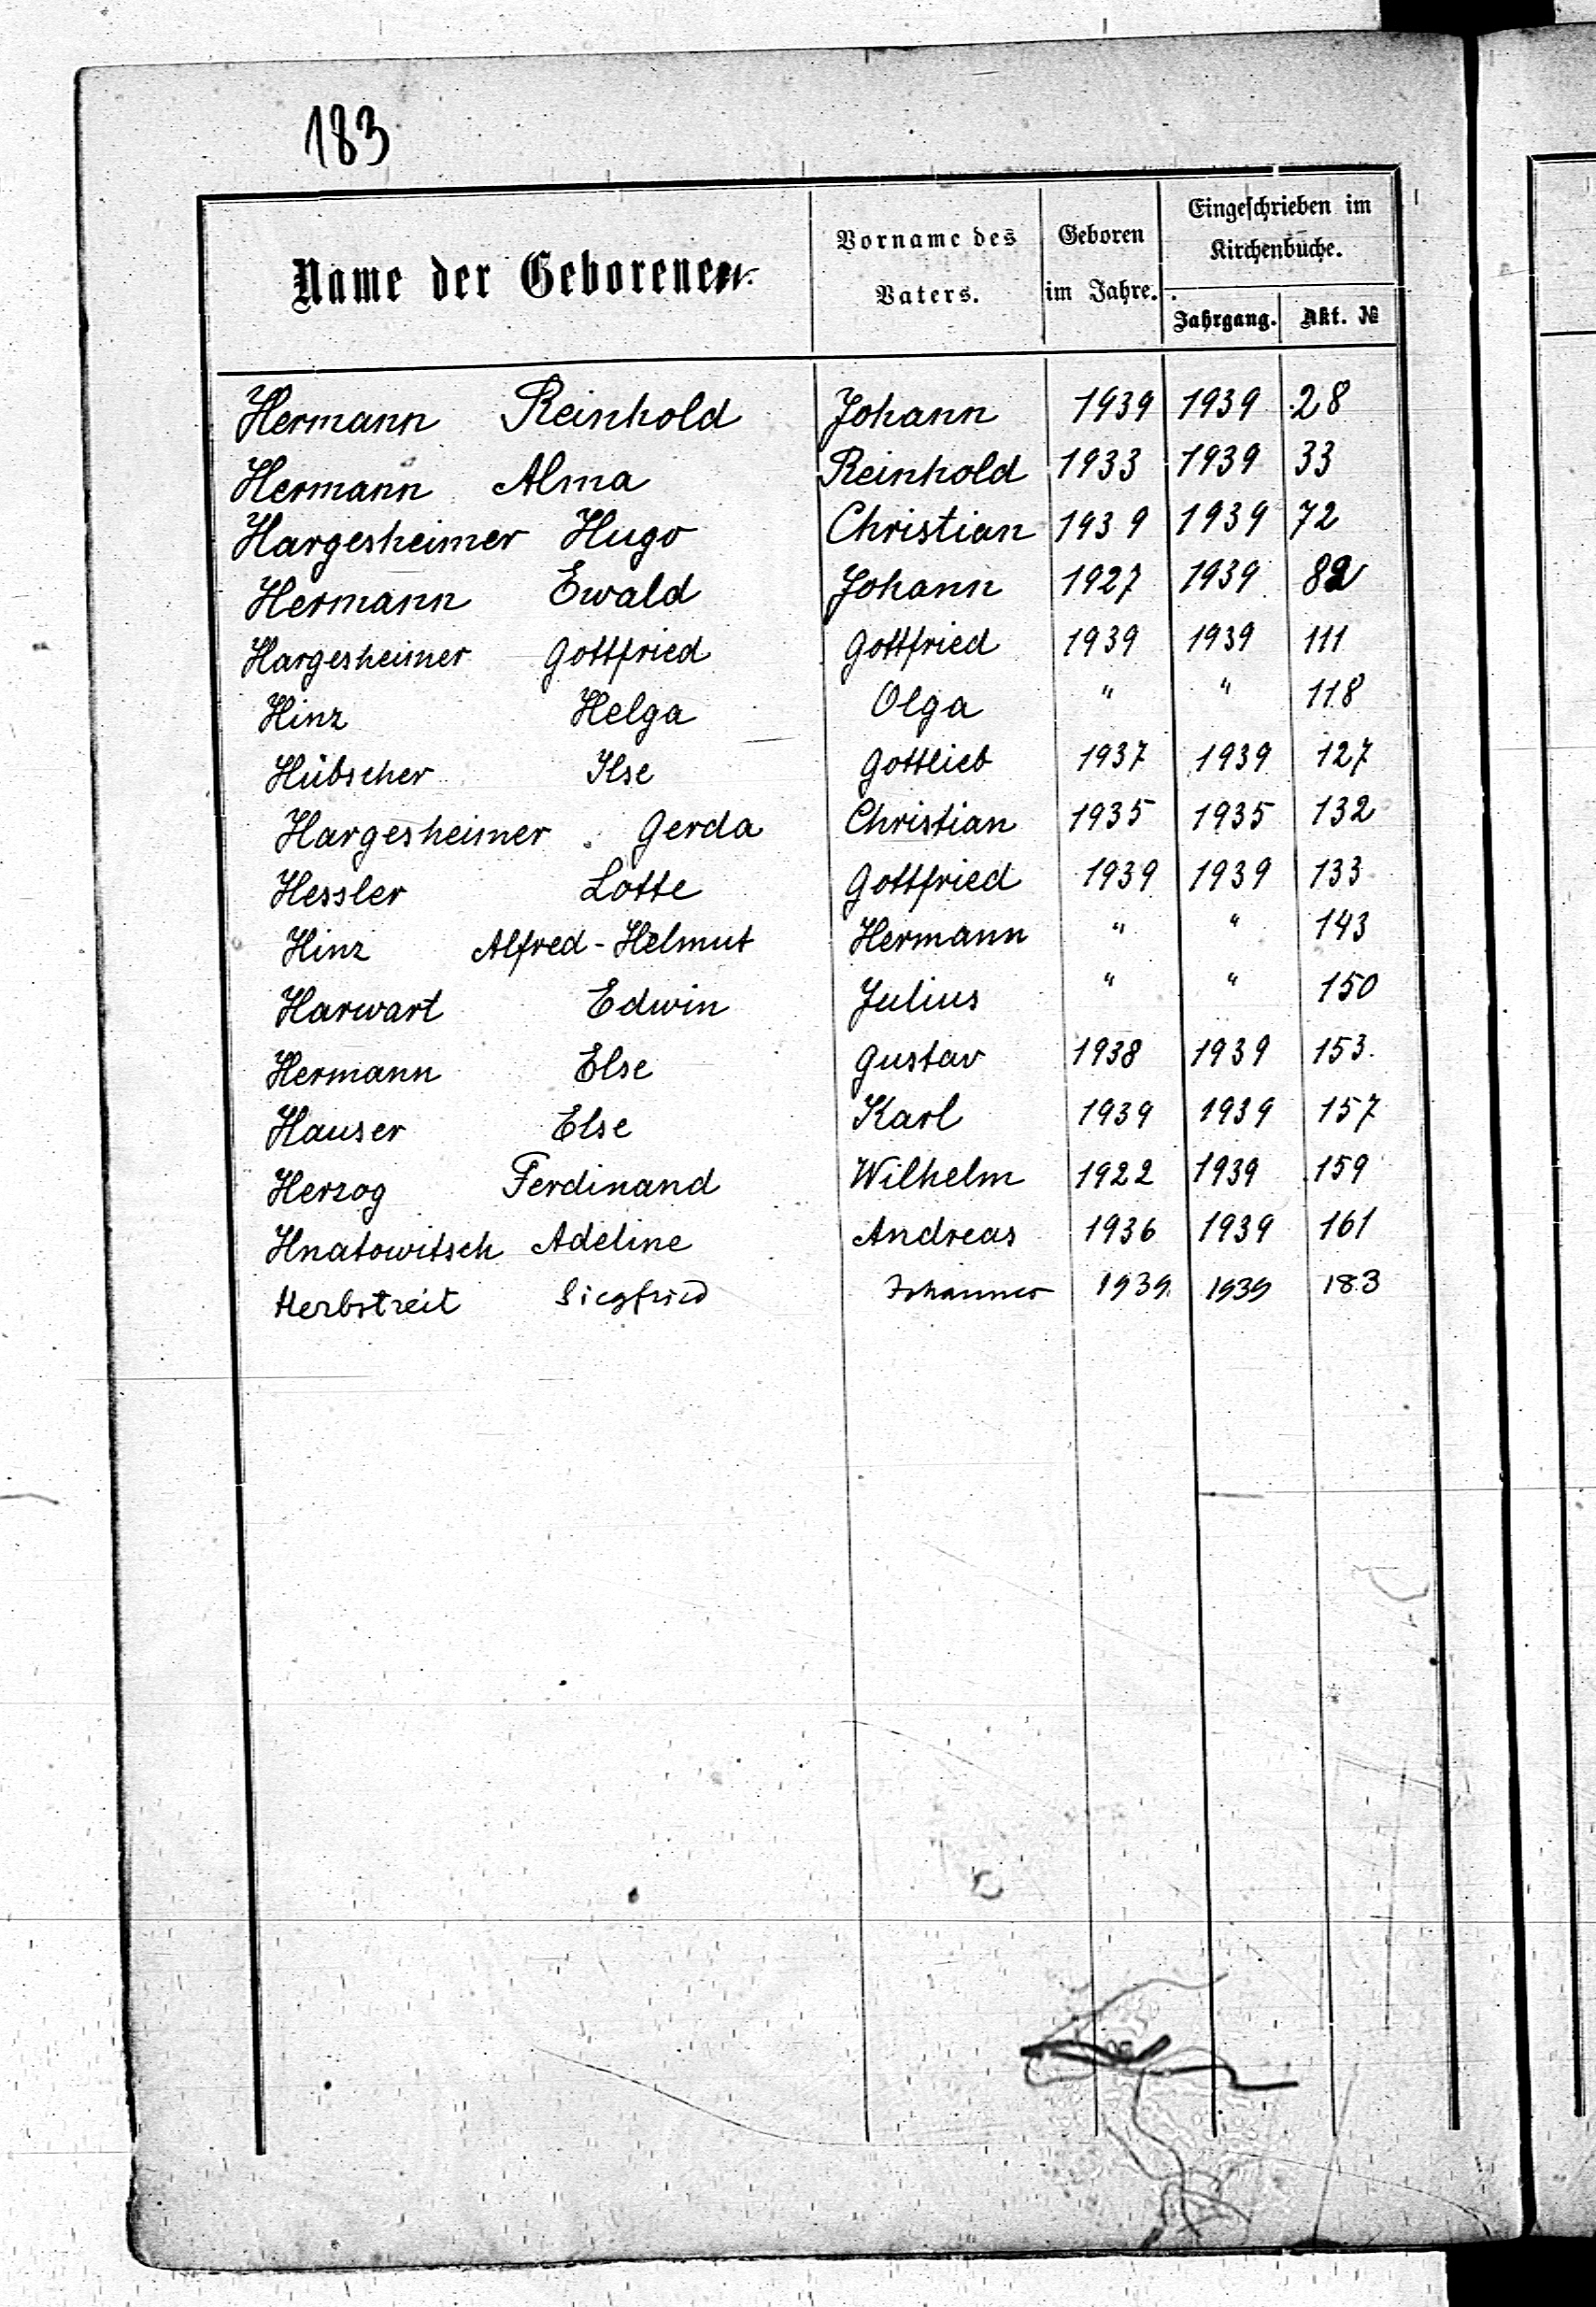 183
Name der Geborenen.
Vorname des Vaters.
Geboren im Jahre.
Eingeschrieben im Kirchenbuche.
Jahrgang. Akt. №
Hermann Reinhold Johann 1939 1939 28
Hermann Alma Reinhold 1933 1939 33
Hargesheimer Hugo Christian 1939 1939 72
Hermann Ewald Johann 1927 1939 82
Hargesheimer Gottfried Gottfried 1939 1939 111
Hinz Helga Olga " " 118
Hübscher Ilse Gottlieb 1937 1939 127
Hargesheimer Gerda Christian 1935 1935 132
Hessler Lotte Gottfried 1939 1939 133
Hinz Alfred-Helmut Hermann " " 143
Harwart Edwin Julius " " 150
Hermann Else Gustav 1938 1939 153.
Hauser Else Karl 1939 1939 157
Herzog Ferdinand Wilhelm 1922 1939 159
Hnatowitsch Adeline Andreas 1936 1939 161
Herbstreit Siegfried Johannes 1939 1939 183